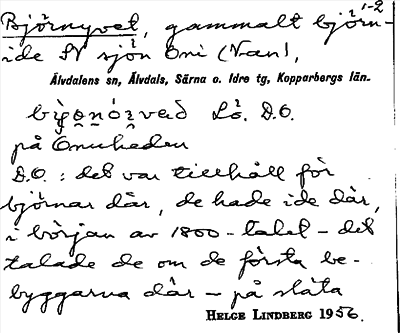 1-2
Björnyvet, gammalt björn-
ide SV sjön Oni (Van),
Älvdalens sn, Älvdals, Särna o. Idre tg, Kopparbergs län.
Lö. D.O.
på Onuheden
D.O.: det var tillhåll för
björnar där, de hade ide där,
i början av 1800-talet - det
talade de om de första be-
byggarna där - på släta
HELGE LINDBERG 1956.